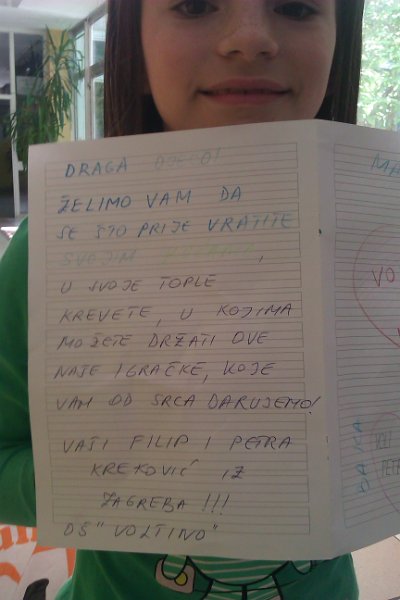 DRAGA DJECO!
ŽELIMO VAM DA
SE ŠTO PRIJE VRATITE
SVOJIM
U SVOJE TOPLE
KREVETE, U KOJIMA
MOŽETE DRŽATI OVE
NAŠE IGRAČKE, KOJE
VAM OD SRCA DARUJEMO!
VAŠI FILIP I PETRA
KREKOVIĆ IZ
ZAGREBA!!!
OŠ "VOLTINO"
MA
VO